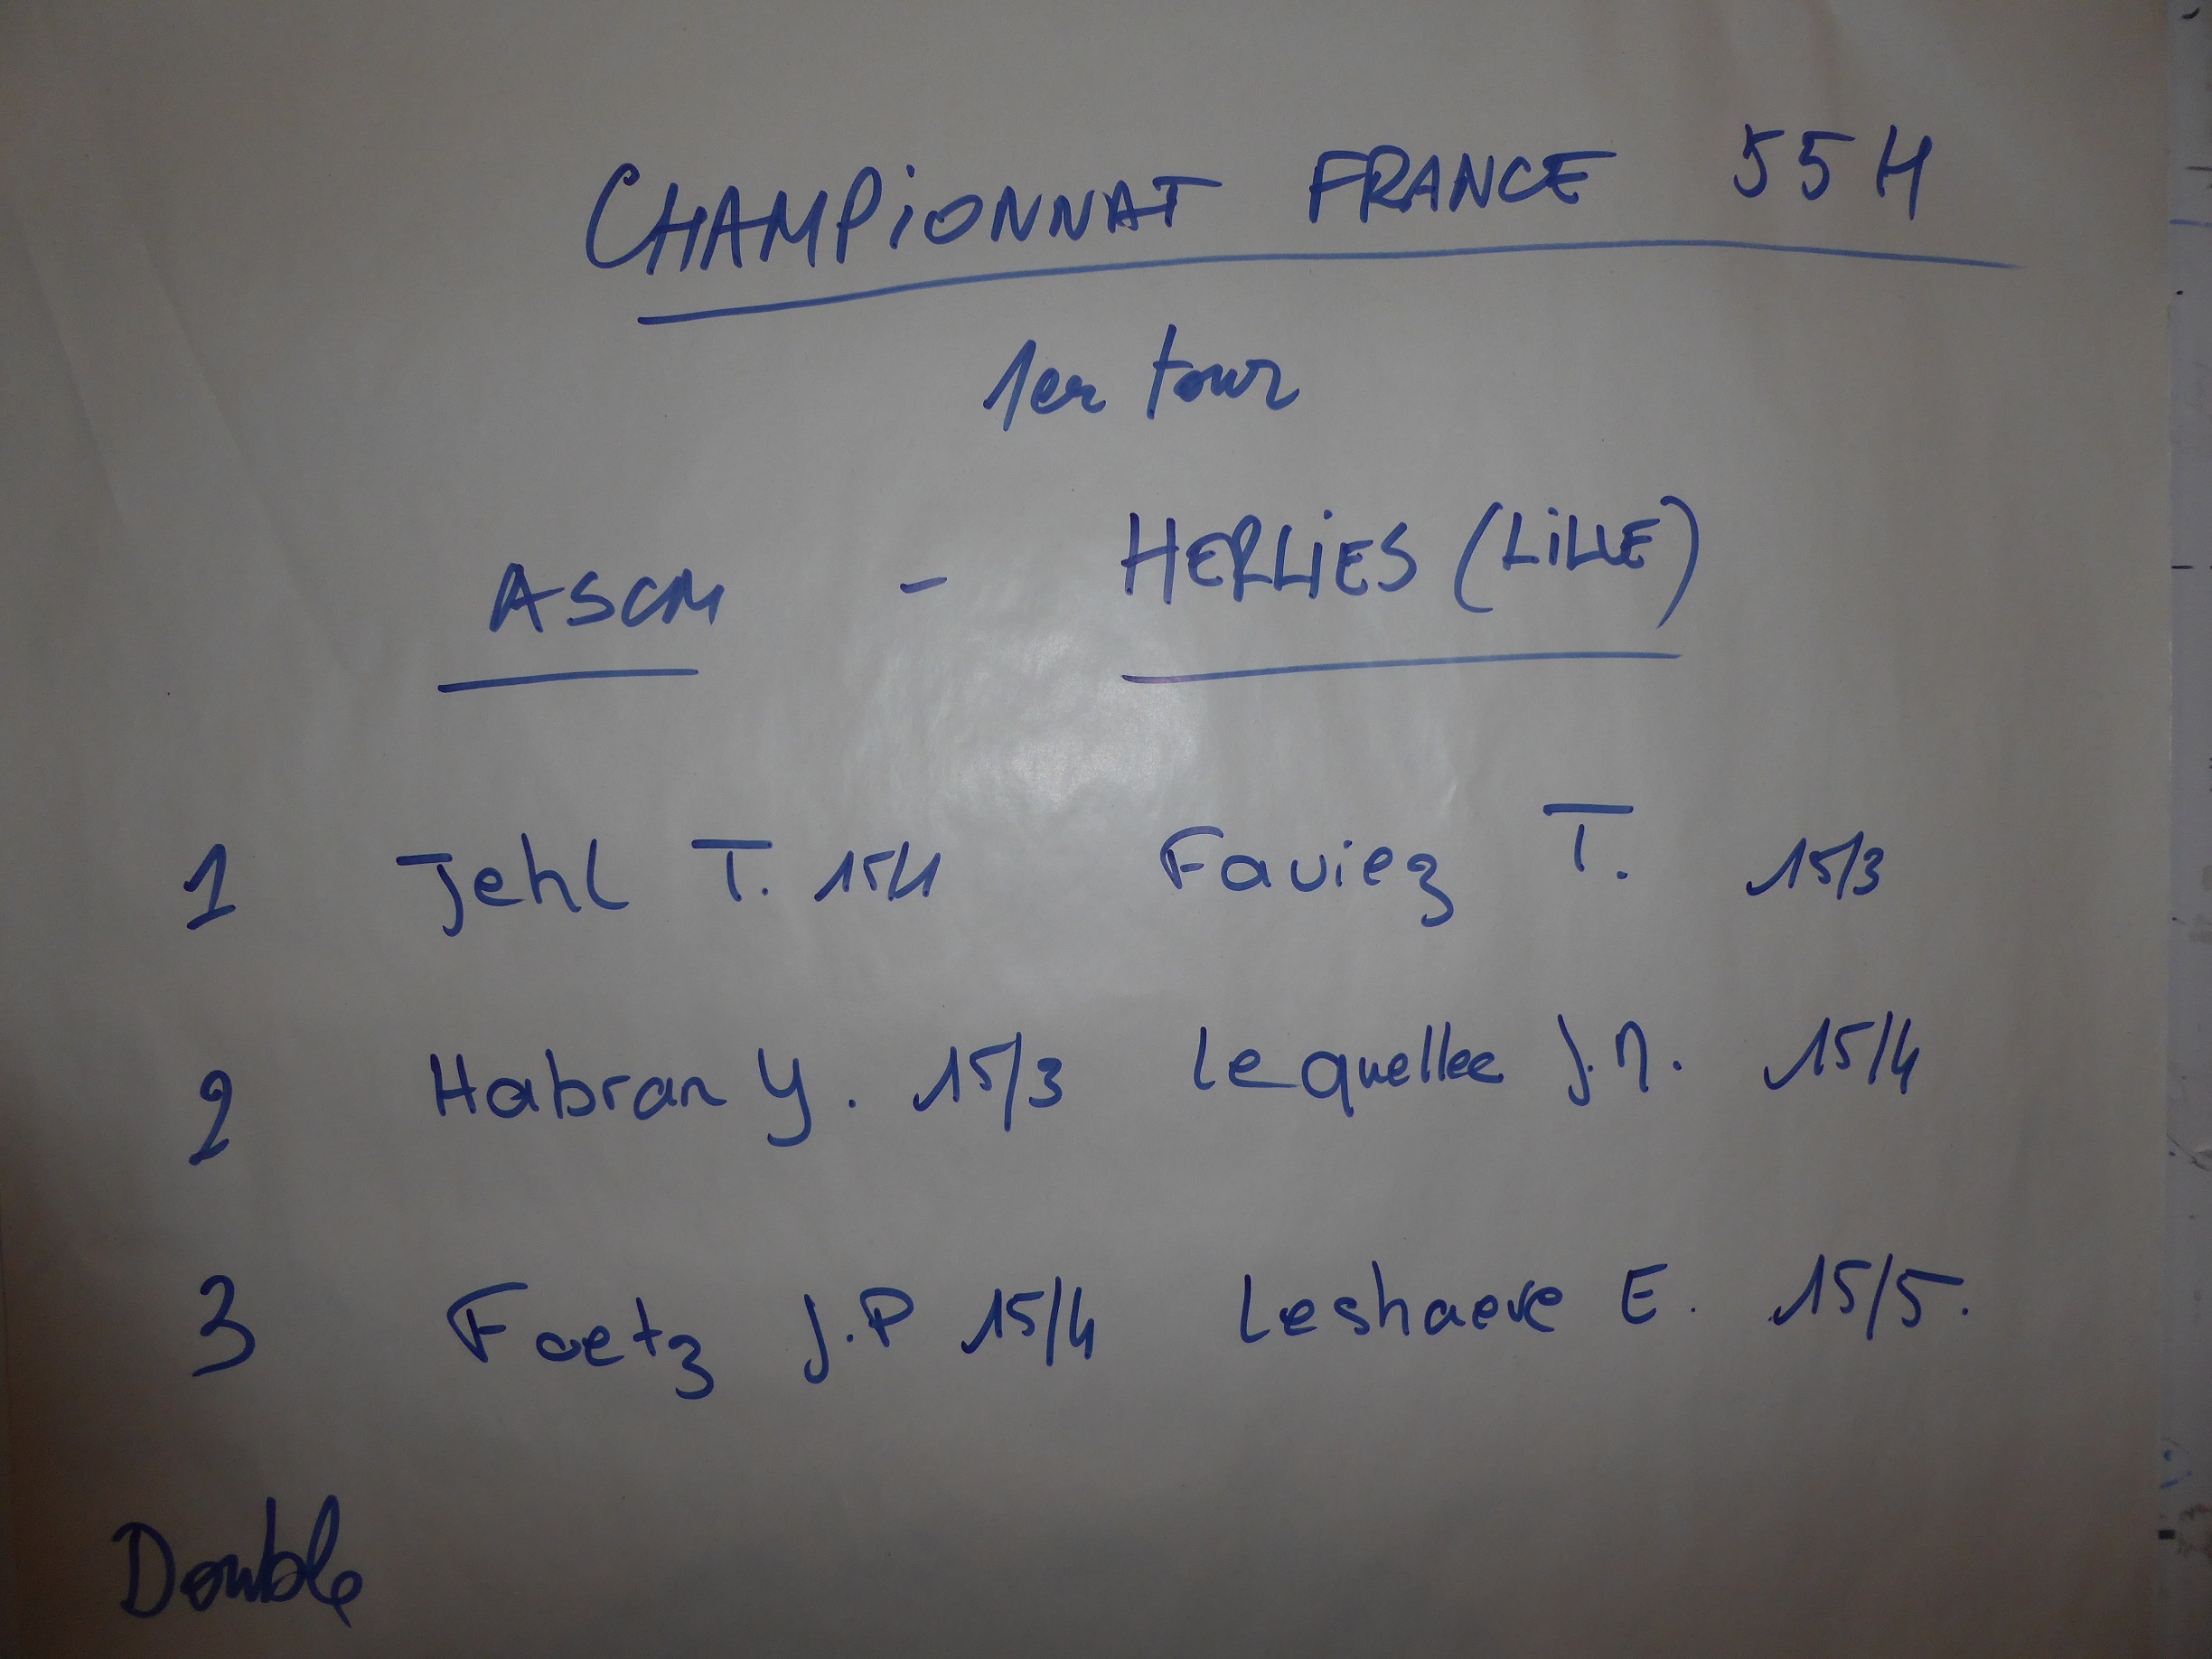 CHAMPiONNAT FRANCE 55 H
1er tour
ASCM - HERLiES (LiLLE)
1 Jehl T. 15/1 Faviez T. 15/3
2 Habran Y. 15/3 Le quellec J.M. 15/4
3 Foetz J.P 15/4 Leshaeve E. 15/5.
Double